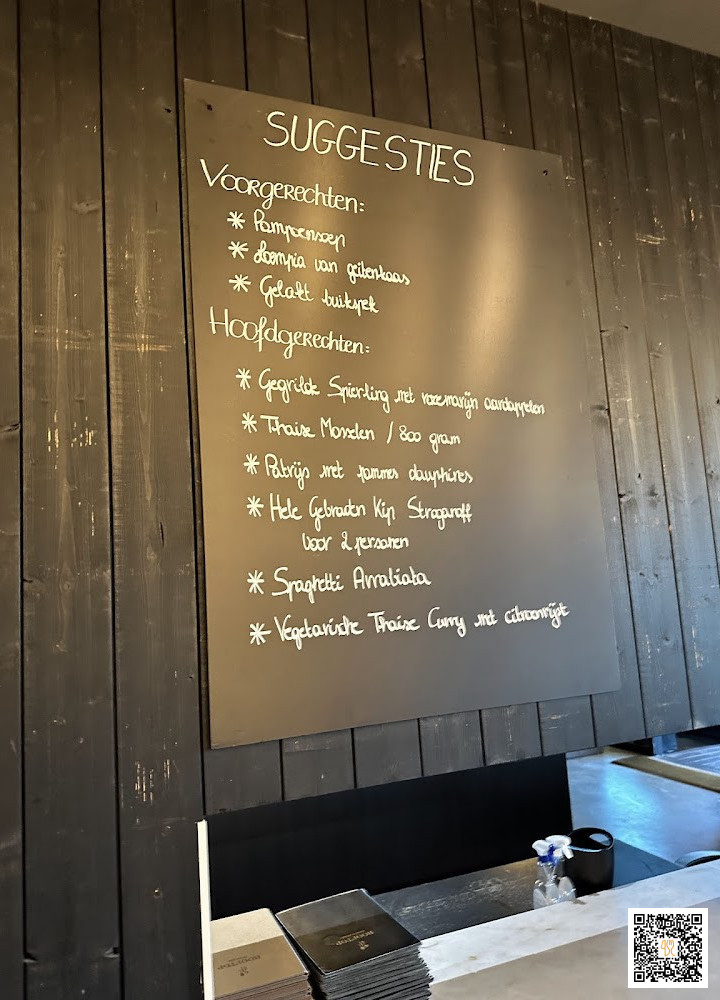 SUGGESTIES
Voorgerechten:
* Pompoensoep
* Loempia van geitenkaas
* Gelakt buikspek
Hoofdgerechten:
* Gegrilde Spierling met rozemarijn aardappelen
* Thaise Mosselen / 800 gram
* Patrijs met pommes dauphines
* Hele Gebraden Kip Stroganoff
voor 2 personen
* Spaghetti Arrabiata
* Vegetarische Thaise Curry met citroenrijst
ROOFTOP